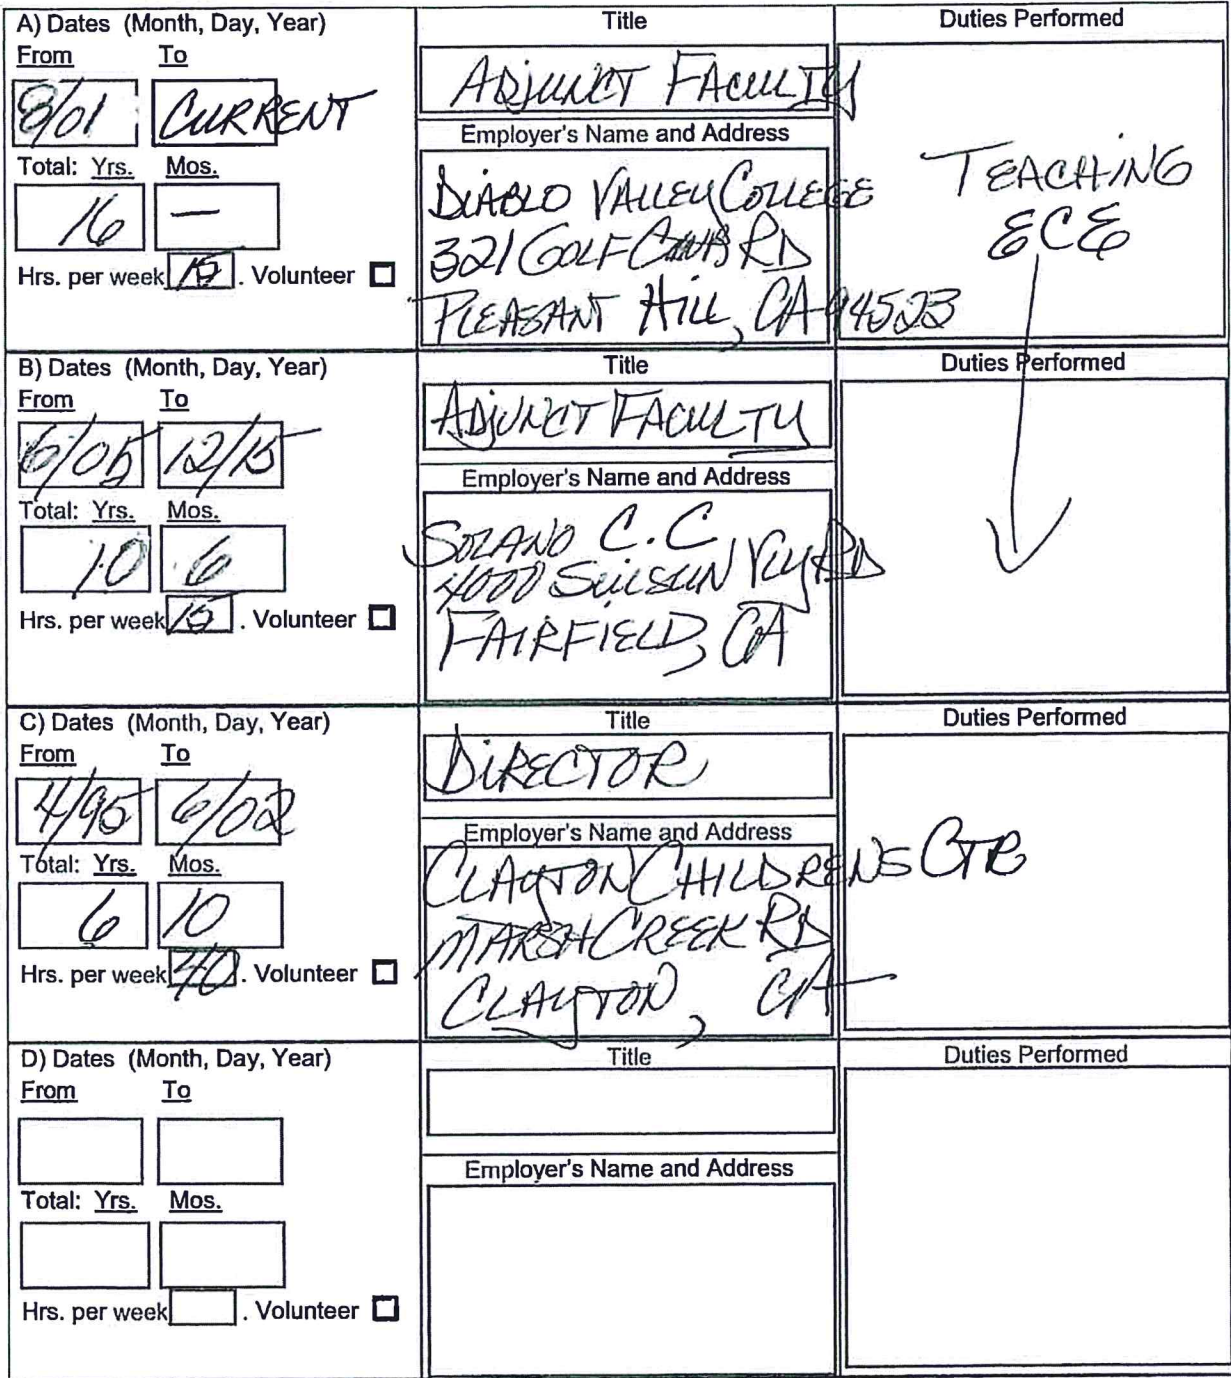 A) Dates (Month, Day, Year)
From To
8/01 CURRENT
Total: Yrs. Mos.
16 —
Hrs. per week 15 . Volunteer
Title
ADJUNCT FACULTY
Employer's Name and Address
DIABLO VALLEY COLLEGE
321 GOLF RD
PLEASANT HILL, CA 94523
Duties Performed
TEACHING
ECE
B) Dates (Month, Day, Year)
From To
6/05 12/15
Total: Yrs. Mos.
10 6
Hrs. per week 15 . Volunteer
Title
ADJUNCT FACULTY
Employer's Name and Address
SOLANO C.C
4000 SUISUN VLY RD
FAIRFIELD, CA
Duties Performed
C) Dates (Month, Day, Year)
From To
4/95 6/02
Total: Yrs. Mos.
6 10
Hrs. per week 40 . Volunteer
Title
DIRECTOR
Employer's Name and Address
CLAYTON CHILDRENS CTR
MARSH CREEK RD
CLAYTON, CA
Duties Performed
D) Dates (Month, Day, Year)
From To
Total: Yrs. Mos.
Hrs. per week . Volunteer
Title
Employer's Name and Address
Duties Performed